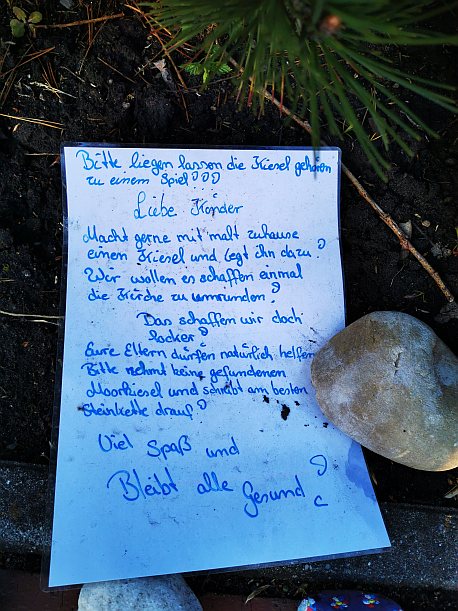 Bitte liegen lassen die Kiesel gehören
zu einem Spiel!!!
Liebe Kinder
Macht gerne mit malt zuhause
einen Kiesel und legt ihn dazu!
Wir wollen es schaffen einmal
die Kirche zu umrunden!
Das schaffen wir doch
locker!
Eure Eltern dürfen natürlich helfen
Bitte nehmt keine gefundenen
kiesel und schreibt am besten
Steinkette drauf!
Viel Spaß und
Bleibt alle Gesund!